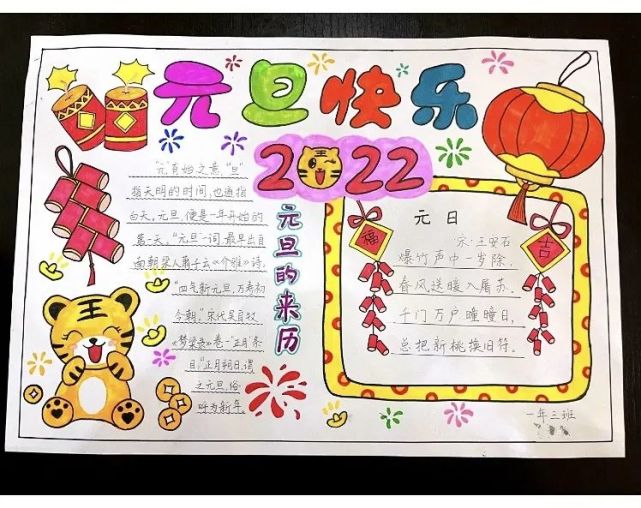 元旦快乐
2022
"元"有始之意,"旦"
指天明的时间,也通指
白天,元旦,便是一年开始的
第一天。"元旦一词最早出自
南朝梁人萧子云《介雅》诗,
"四气新元旦,万寿初
今朝。"宋代吴自牧
《梦梁录》卷一"正月"条
目:"正月朔日,谓
之元旦,俗
呼为新年。
元旦的来历
元日
宋·王安石
爆竹声中一岁除,
春风送暖入屠苏.
千门万户曈曈日,
总把新桃换旧符.
福
吉
王
一年三班